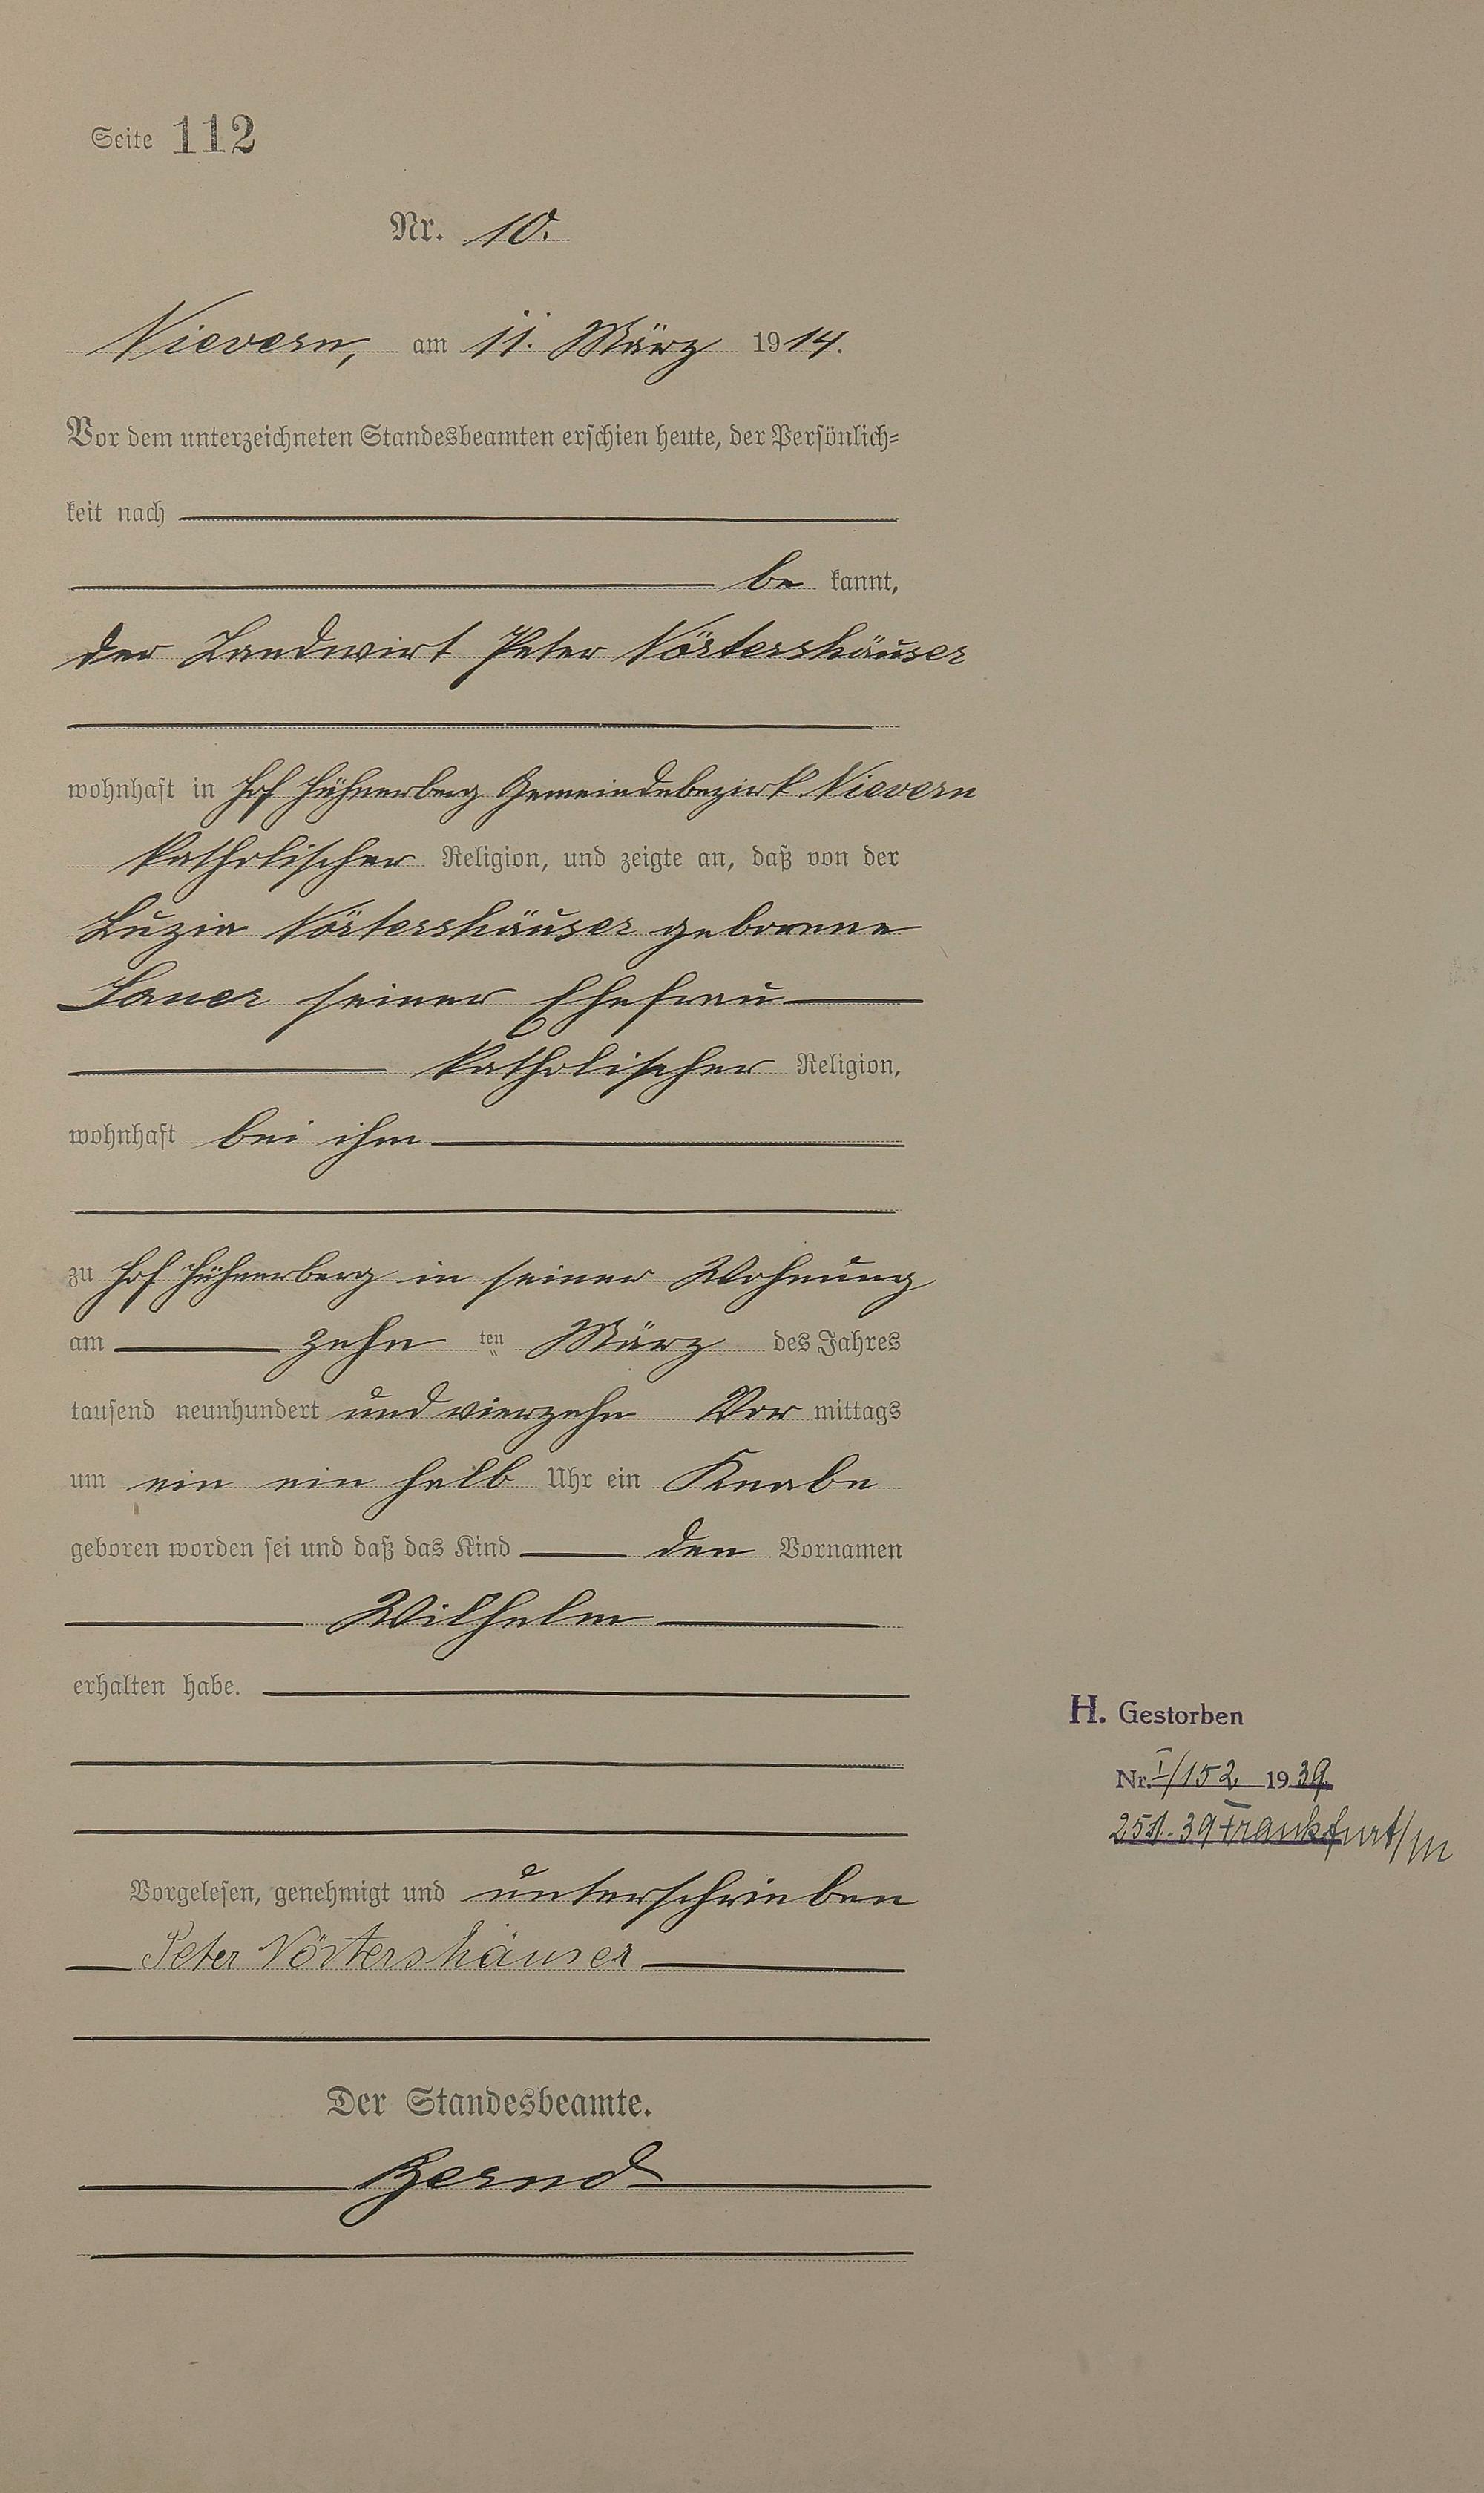 Seite 112
Nr. 10.
Nievern, am 11. März 1914.
Vor dem unterzeichneten Standesbeamten erschien heute, der Persönlich-
keit nach
be kannt,
der Landwirt Peter Nörtershäuser
wohnhaft in Hof Hühnerberg Gemeindebezirk Nievern
katholischer Religion, und zeigte an, daß von der
Luzia Nörtershäuser geborene
seiner Ehefrau
katholischer Religion,
wohnhaft bei ihm
zu Hof Hühnerberg in seiner Wohnung
am zehn ten März des Jahres
tausend neunhundert und vierzehn Vor mittags
um ein ein halb Uhr ein Knabe
geboren worden sei und daß das Kind den Vornamen
Wilhelm
erhalten habe.
H. Gestorben
Nr. I/152 1939
Frankfurt/M
Vorgelesen, genehmigt und unterschrieben
Peter Nörtershäuser
Der Standesbeamte.